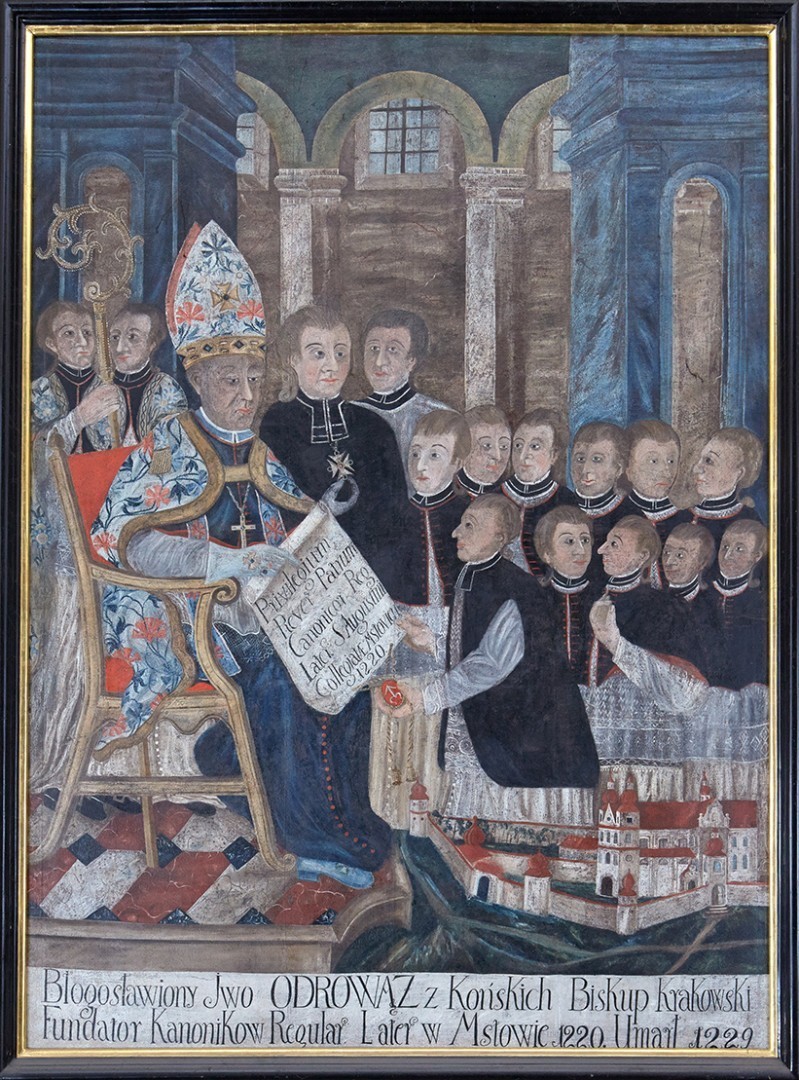 Privilegium
Rever Patrum
Canonicor Reg
Later S Augustini
1220
Błogosławiony Jwo ODROWĄZ z Końskich Biskup Krakowski
Fundator Kanonikow Regular Later w Mstowie 1220. Umarł 1229